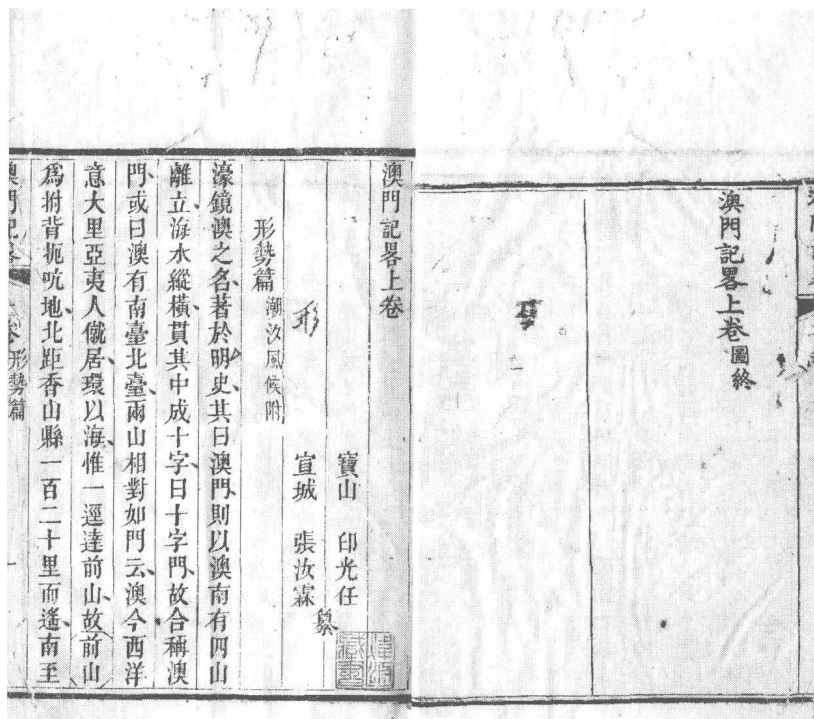 澳門記畧上卷 圖終
澳門記畧上卷
寶山 印光任
宣城 張汝霖 纂
形
形勢篇 潮汐風候附
濠鏡澳之名著於明史其曰澳門則以澳南有四山
離立海水縱橫貫其中成十字曰十字門故合稱澳
門或曰澳有南臺北臺兩山相對如門云澳今西洋
意大里亞夷人僦居環以海惟一逕達前山故前山
為拊背扼吭地北距香山縣一百二十里而遙南至
澳門記畧 卷 形勢篇